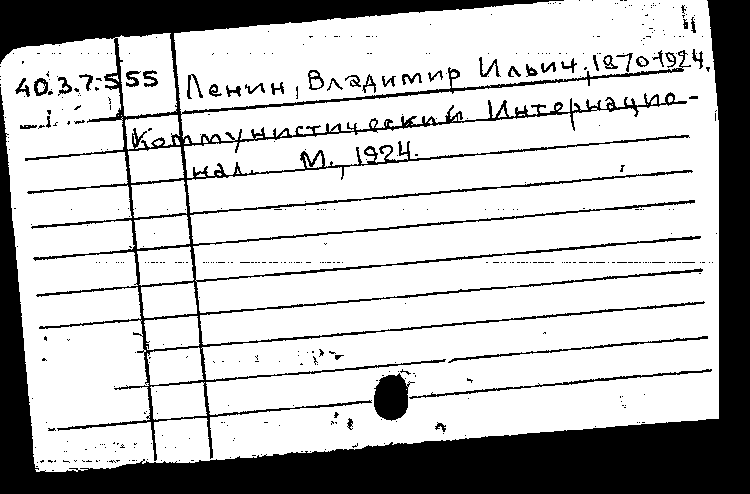 40.3.7:555 Ленин, Владимир Ильич, 1870-1924.
Коммунистический Интернацио-
нал. М., 1924.